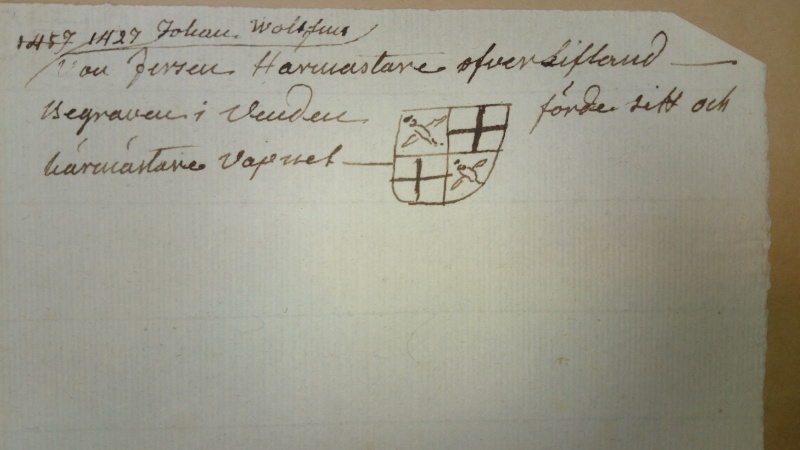 1457 1427 Johan Wolthus
Von fersen Harmästare ofver Lifland
Begraven i Venden förde sitt och
härmästare Vapnet